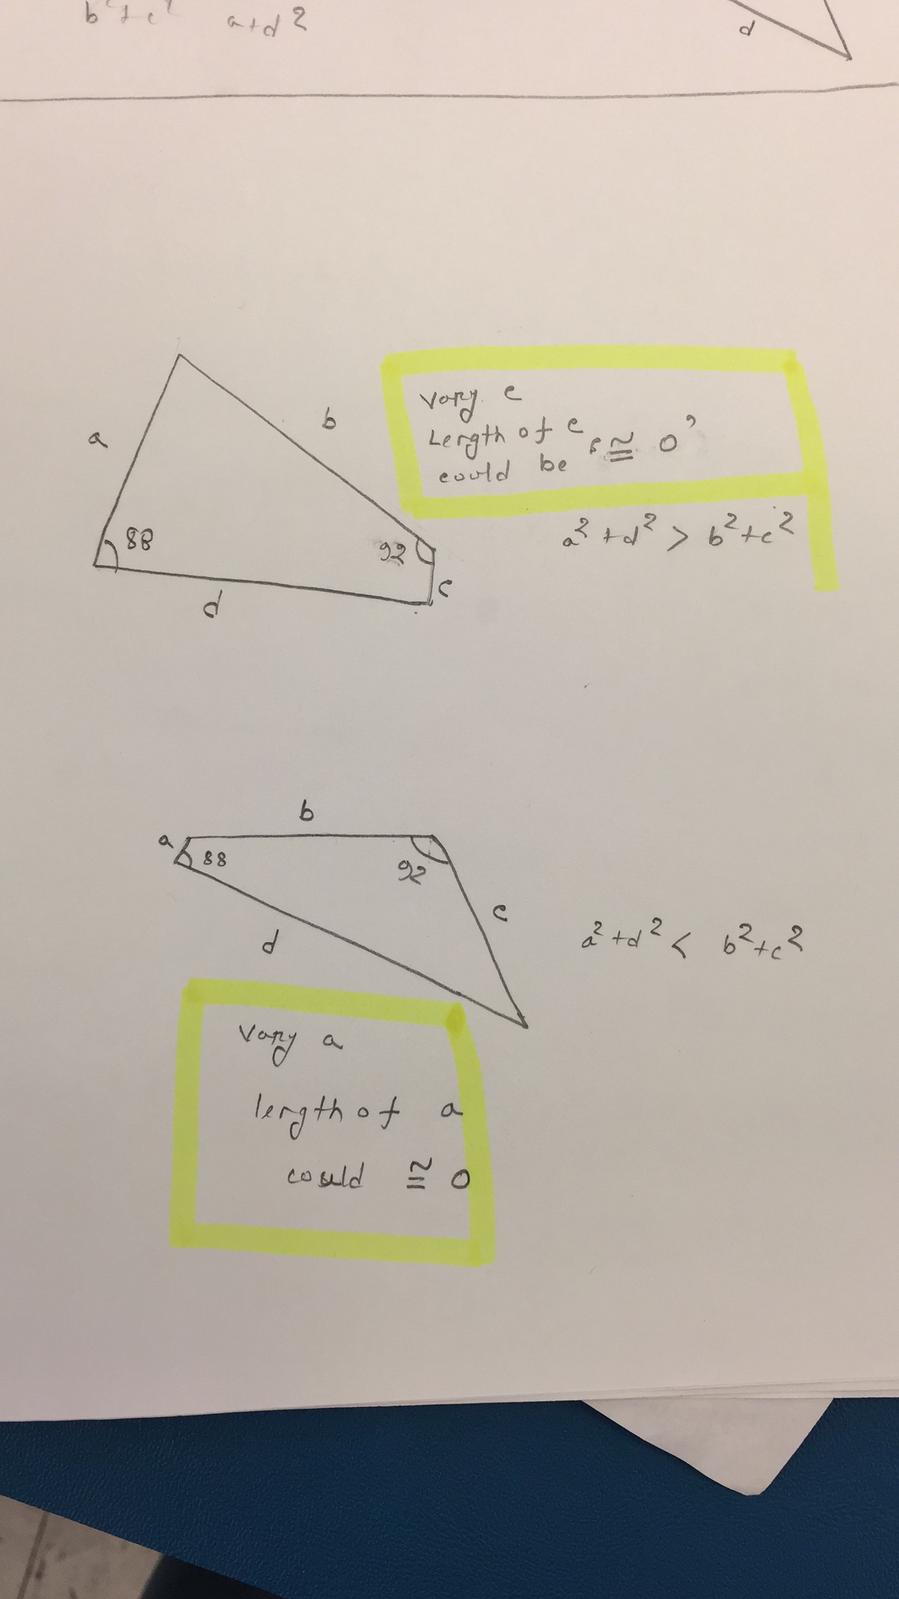 b²+c² a+d²
d
a
b
88
92
c
d
Vary c
Length of c
could be ≅ 0
a²+d² > b²+c²
b
a
88
92
c
d
a²+d² < b²+c²
Vary a
length of a
could ≅ 0